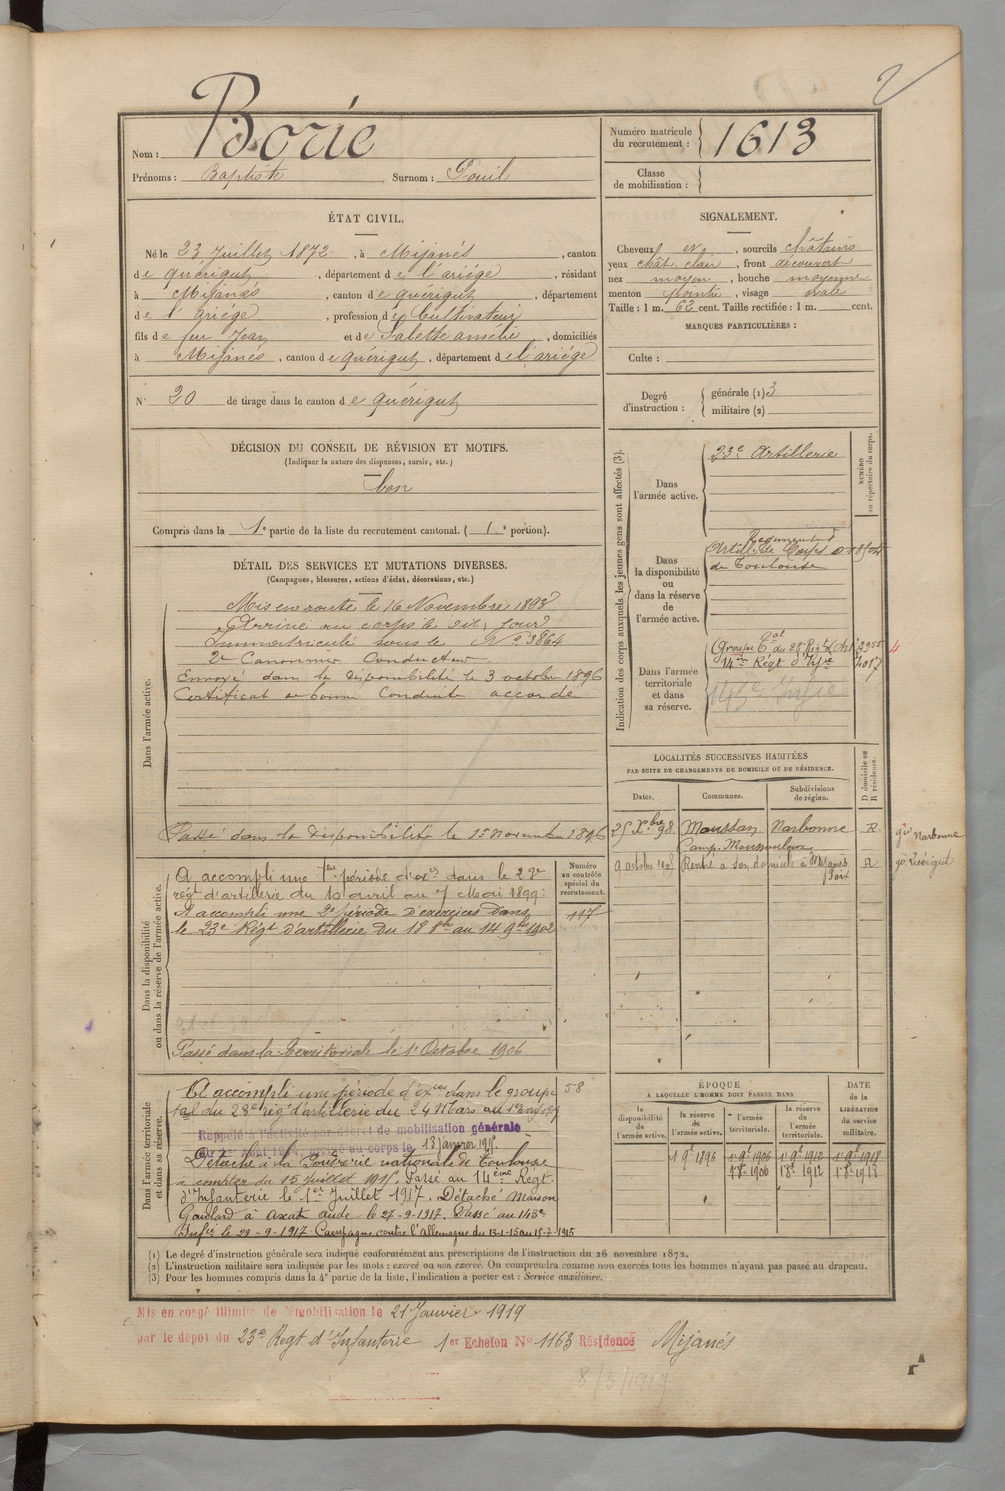 2
Nom : Borie
Prénoms : Baptiste Surnom : Gouil
Numéro matricule du recrutement : 1613
Classe de mobilisation :
ÉTAT CIVIL.
Né le 23 Juillet 1872, à Mijanès, canton
de quérigut, département de l'ariège, résidant
à Mijanès, canton de quérigut, département
de l'Ariège, profession de Cultivateur
fils de feu Jean et de Salette amélie, domiciliés
à Mijanès, canton de quérigut, département de l'ariège
N° 20 de tirage dans le canton de quérigut
SIGNALEMENT.
Cheveux et, sourcils châtains
yeux chât clair, front découvert
nez moyen, bouche moyenne
menton pointu, visage ovale
Taille : 1 m. 62 cent. Taille rectifiée : 1 m. cent.
MARQUES PARTICULIÈRES :
Culte :
Degré d'instruction : générale (1) 3
militaire (2)
DÉCISION DU CONSEIL DE RÉVISION ET MOTIFS.
(Indiquer la nature des dispenses, sursis, etc.)
bon
Compris dans la 1e partie de la liste du recrutement cantonal. (1e portion).
DÉTAIL DES SERVICES ET MUTATIONS DIVERSES.
(Campagnes, blessures, actions d'éclat, décorations, etc.)
Dans l'armée active.
Mis en route le 16 Novembre 1893
Arrivé au corps le dit jour
Immatriculé sous le N° 3864
2e Canonnier Conducteur
Envoyé dans la disponibilité le 3 octobre 1896
Certificat de bonne Conduite accordé
Passé dans la disponibilité le 1er Novembre 1896
Indication des corps auxquels les jeunes gens sont affectés (3).
NUMÉRO au répertoire du corps.
Dans l'armée active.
23e Artillerie
Dans la disponibilité ou dans la réserve de l'armée active.
Régiment d'
Artillie de Corps
de Toulouse
Dans l'armée territoriale et dans sa réserve.
Groupe tal du 23e Régt d'Art 2955
14me Régt d'Infie 7017
143e Infie
4
LOCALITÉS SUCCESSIVES HABITÉES
PAR SUITE DE CHANGEMENTS DE DOMICILE OU DE RÉSIDENCE.
Dates. Communes. Subdivisions de région. D domicile ou R résidence.
25 Xbre 98 Moussan Narbonne R. gie Narbonne
Camp.
9 octobre 1908 Rentré à son domicile à Mijanès Foix R gie Quérigut
Dans la disponibilité ou dans la réserve de l'armée active.
Numéro au contrôle spécial du recrutement.
A accompli une 1ère période d'exces dans le 23e
régt d'artillerie du 10 avril au 7 Mai 1899.
A accompli une 2e période d'exercices dans 117
le 23e Régt d'artillerie du 18 8bre au 14 9bre 1902
Passé dans la Territoriale le 1er Octobre 1906
Dans l'armée territoriale et dans sa réserve.
A accompli une période d'exces dans le groupe 58
tal du 23e régt d'artillerie du 24 Mars au 1er avril
Rappelé à l'activité par décret de mobilisation générale
du 1er Août 1914, arrivé au corps le 13 janvier 1915.
Détaché à la Poudrerie nationale de Toulouse
à compter du 15 juillet 1915. Passé au 14ème Régt
d'Infanterie le 1er Juillet 1917. Détaché Maison
Gaulard à Axat aude le 27-9-1917. Passé au 143e
Infie le 29-9-1917. Campagne contre l'Allemagne du 13-1-15 au 15-7-1915
ÉPOQUE
À LAQUELLE L'HOMME DOIT PASSER DANS
DATE de la LIBÉRATION du service militaire.
la disponibilité de l'armée active. la réserve de l'armée active. l'armée territoriale. la réserve de l'armée territoriale.
1 9e 1896 1er 9e 1906 1er 9e 1912 1er 9e 1918
1er 8e 1906 1 8e 1912 1er 8e 1918
(1) Le degré d'instruction générale sera indiqué conformément aux prescriptions de l'instruction du 26 novembre 1872.
(2) L'instruction militaire sera indiquée par les mots : exercé ou non exercé. On comprendra comme non exercés tous les hommes n'ayant pas passé au drapeau.
(3) Pour les hommes compris dans la 4e partie de la liste, l'indication à porter est : Service auxiliaire.
Mis en congé illimité de démobilisation le 21 Janvier 1919
par le dépôt du 23e Regt d'Infanterie 1er Echelon N° 1163 Résidence Mijanès
8/3/1919